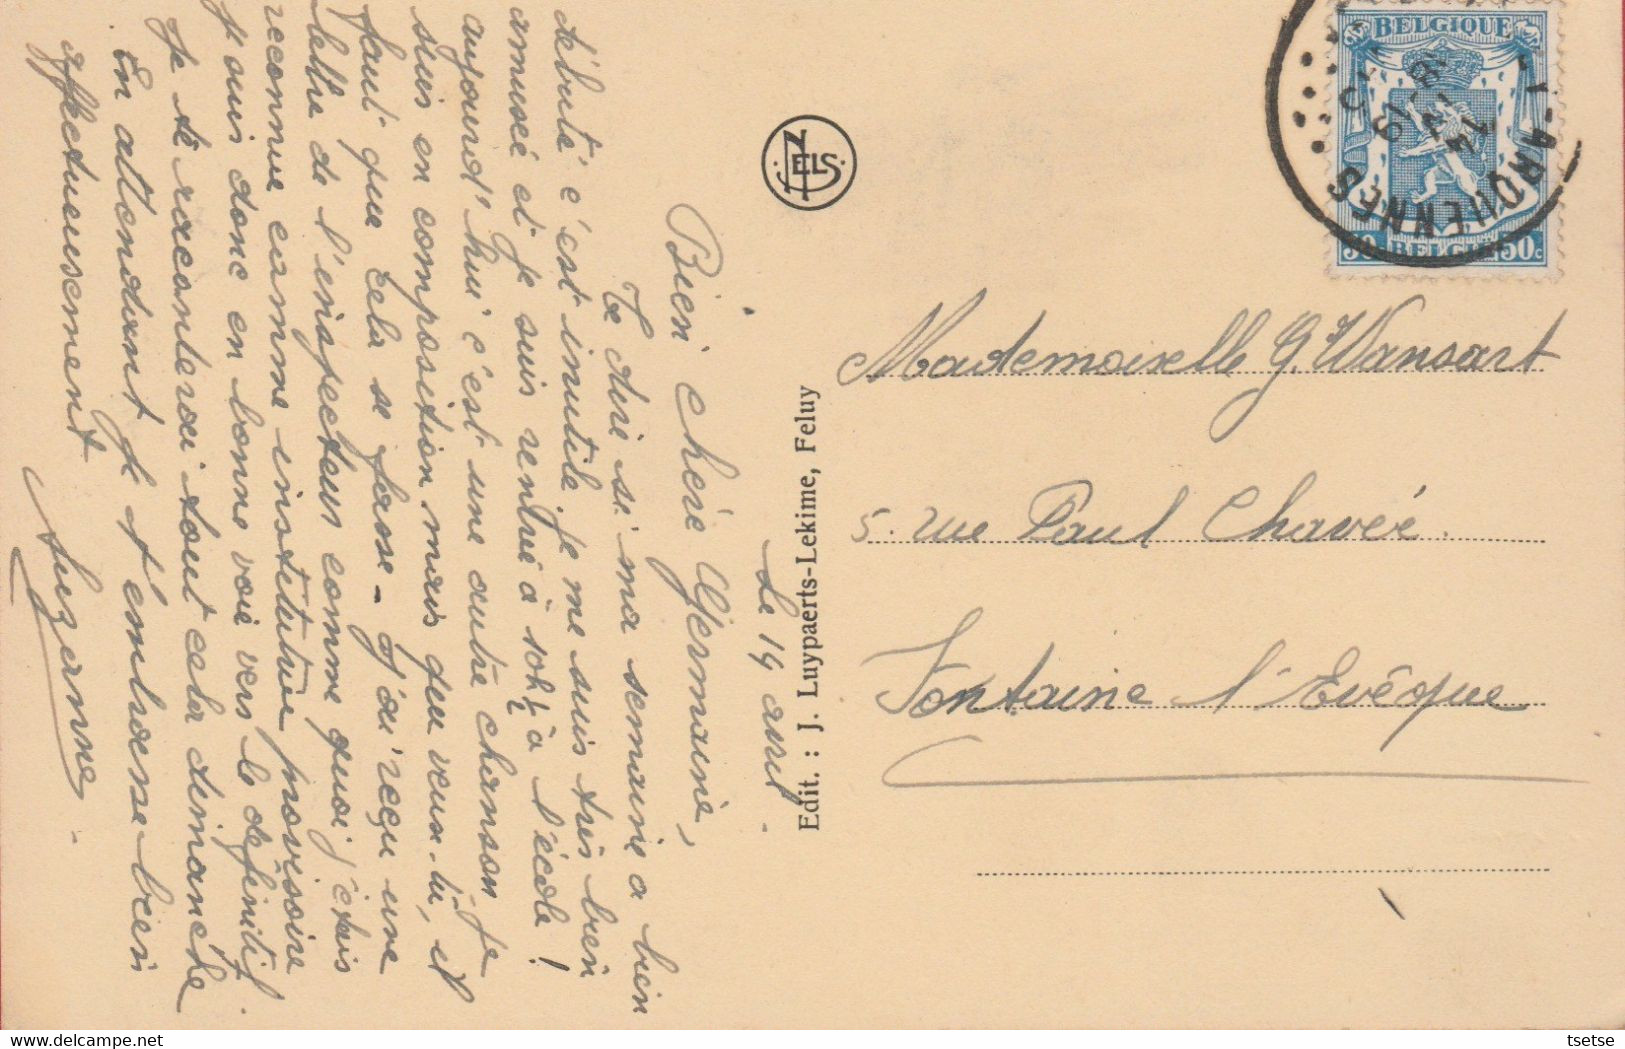 Le 14 avril
Bien chère Germaine,
Te dire si ma semaine a bien
débuté c'est inutile. Je me suis très bien
amusée et je suis rentrée à 10h½ à l'école !
aujourd'hui c'est une autre chanson, je
suis en composition mais que veux-tu, il
faut que cela se fasse - J'ai reçu une
lettre de l'inspecteur comme quoi j'étais
reconnue comme institutrice provisoire
j'suis donc en bonne voie vers le définitif.
Je te raconterai tout cela dimanche
En attendant je t'embrasse bien
affectueusement
Suzanne
NELS
Edit. : J. Luypaerts-Lekime, Feluy
BELGIQUE
50 BELGIË 50c
ARQUENNES
Mademoiselle G. Wansart
5. rue Paul Chavée.
Fontaine l'Evêque
tsetse